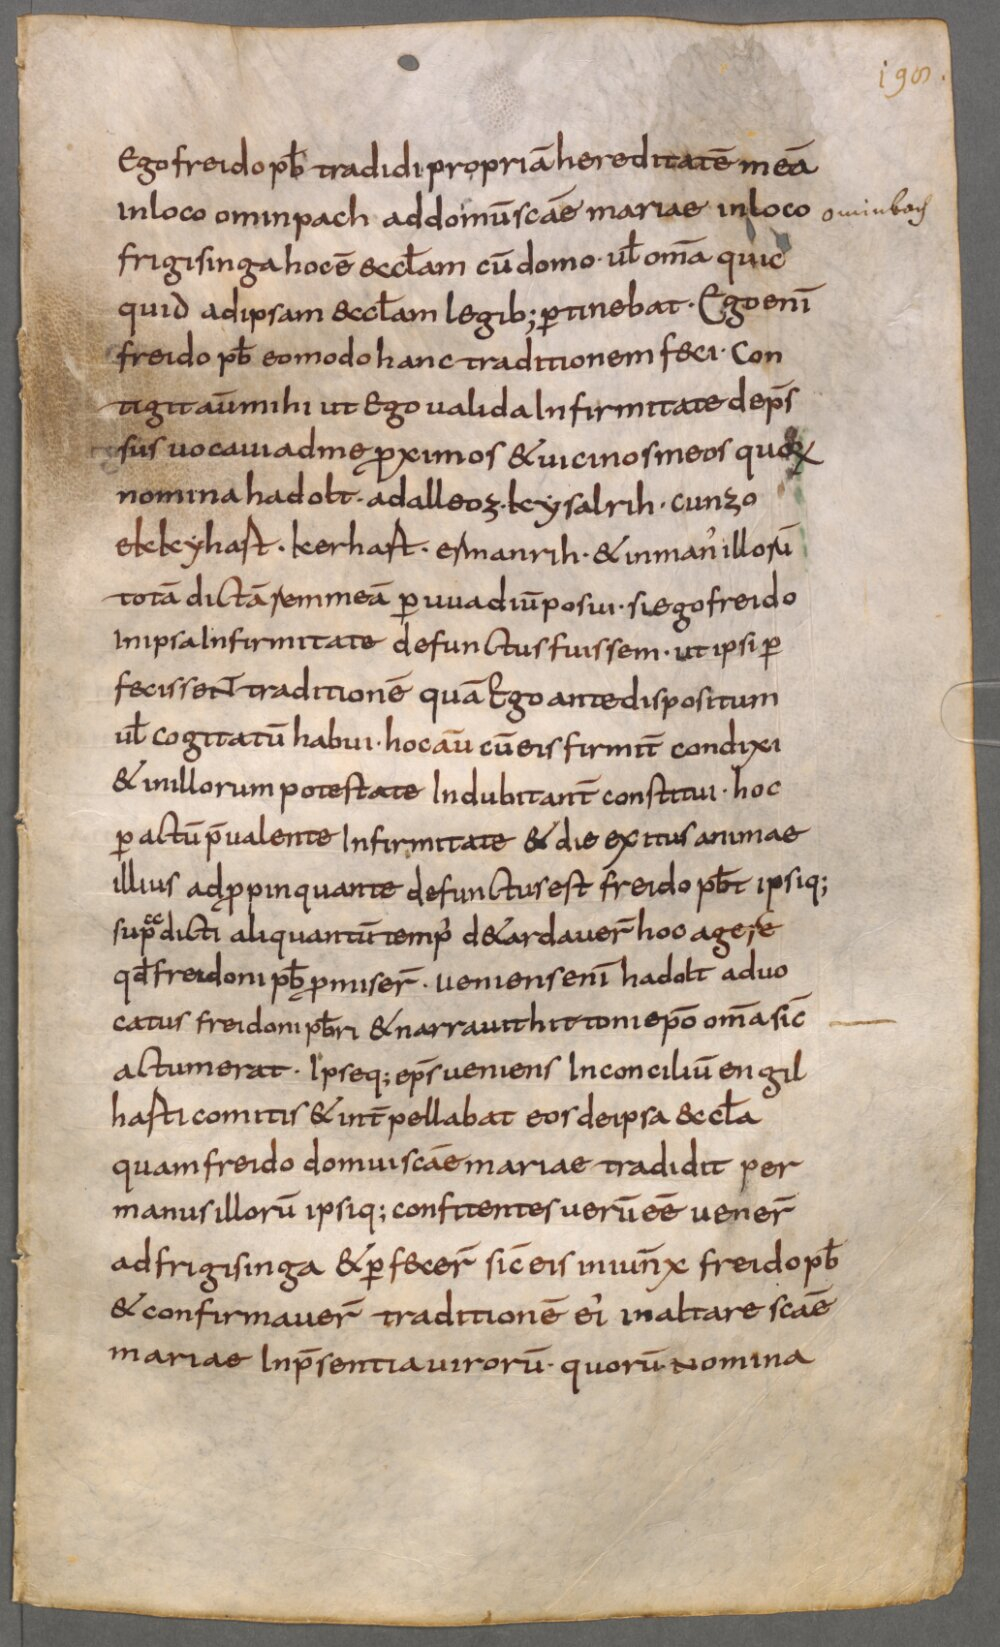 198.
Ego freido pƀ tradidi propriā hereditatē meā
in loco ominpach ad domū scāe mariae in loco
ominbach
frigisinga hoc ē & eccłam cū domo · uł om̄a quic
quid ad ipsam & eccłam legib; ꝑtinebat · Ego enī
freido pƀ eo modo hanc traditionem feci · Con
tigit aū mihi ut Ego ualida Infirmitate dep̄s
sus uocaui ad me ꝓximos & uicinos meos quoꝝ
nomina hadolt · adalleoz · keysalrih · cunzo
ekkyhast · kerhast · ermanrih · & in man᾽ illorū
totā dictā rem meā ꝑ uuadiū posui · si ego freido
In ipsa Infirmitate defunctus fuissem · ut ipsi ꝑ
fecissent traditionē quā Ego ante dispositum
uł cogitatū habui · hoc aū cū eis firmit̄ condixi
& in illorum potestate Indubitant̄ constitui · hoc
ꝑ actū p̄ualente Infirmitate & die exitus animae
illius adꝓpinquante defunctus est freido pƀt ipsiq;
sup̄dicti aliquantū temp᾽ d&ardaver̄ hoc agere
qđ freidoni pƀ ꝓmiser̄ · ueniens enī hadolt aduo
catus freidoni pƀri & narrauit hittoni ep̄o om̄a sic̄
actum erat · Ipseq; ep̄s ueniens In conciliū engil
hasti comitis & int̄pellabat eos de ipsa & eccła
quam freido domui scāe mariae tradidit per
manus illorū ipsiq; confitentes uerū eē uener̄
ad frigisinga & ꝑfecer̄ sic̄ eis iniun̄x freido pƀ
& confirmauer̄ traditionē ei᾽ in altare scāe
mariae In p̄sentia uirorū · quorū nomina